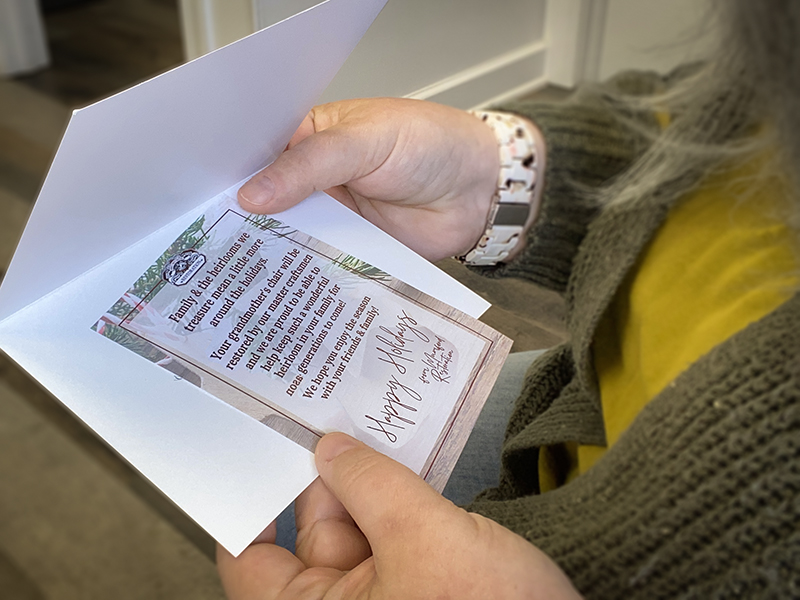 Family & the heirlooms we
treasure mean a little more
around the holidays.
Your grandmother's chair will be
restored by our master craftsmen
and we are proud to be able to
help keep such a wonderful
heirloom in your family for
generations to come!
We hope you enjoy the season
with your friends & family!
Happy Holidays
from
Restoration